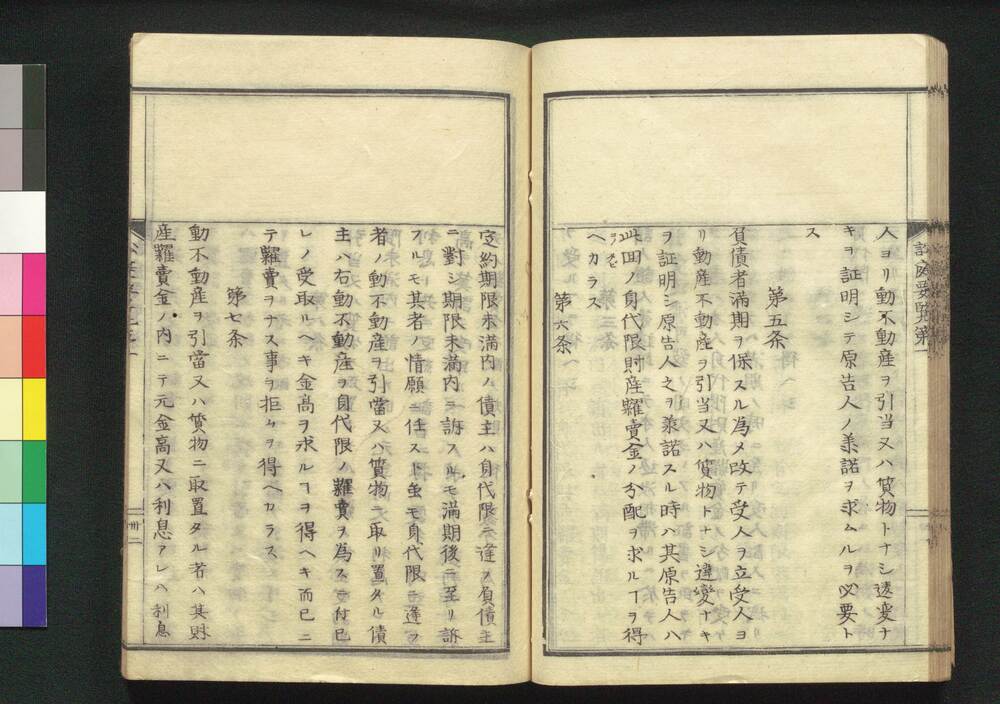 人ヨリ動不動産ヲ引当又ハ貭物トナシ違変ナ
キヲ証明シテ原告人ノ承諾ヲ求ムルヲ必要ト
ス
第五条
負債者満期ヲ保スル為メ改テ受人ヲ立受人ヨ
リ動産不動産ヲ引当又ハ貭物トナシ違変ナキ
ヲ証明シ原告人之ヲ承諾スル時ハ其原告人ハ
此回ノ身代限財産糶賣金ノ分配ヲ求ルヿヲ得
ヘカラス
第六条
定約期限未満内ノ債主ハ身代限ニ逢フ負債主
ニ對シ期限未満内ヲ訴フルモ満期後ニ至リ訴
フルモ其者ノ情願ニ任スト虽モ身代限ニ逢フ
者ノ動不動産ヲ引當又ハ貭物ニ取リ置タル債
主ハ右動不動産ヲ身代限ノ糶賣ヲ為ス立付已
レノ受取ルヘキ金高ヲ求ルヿヲ得ヘキ而已ニ
テ糶賣ヲナス事ヲ拒ムヲ得ヘカラス
第七条
動不動産ヲ引當又ハ貭物ニ取置タル者ハ其財
産糶賣金ノ内ニテ元金高又ハ利息アレハ利息